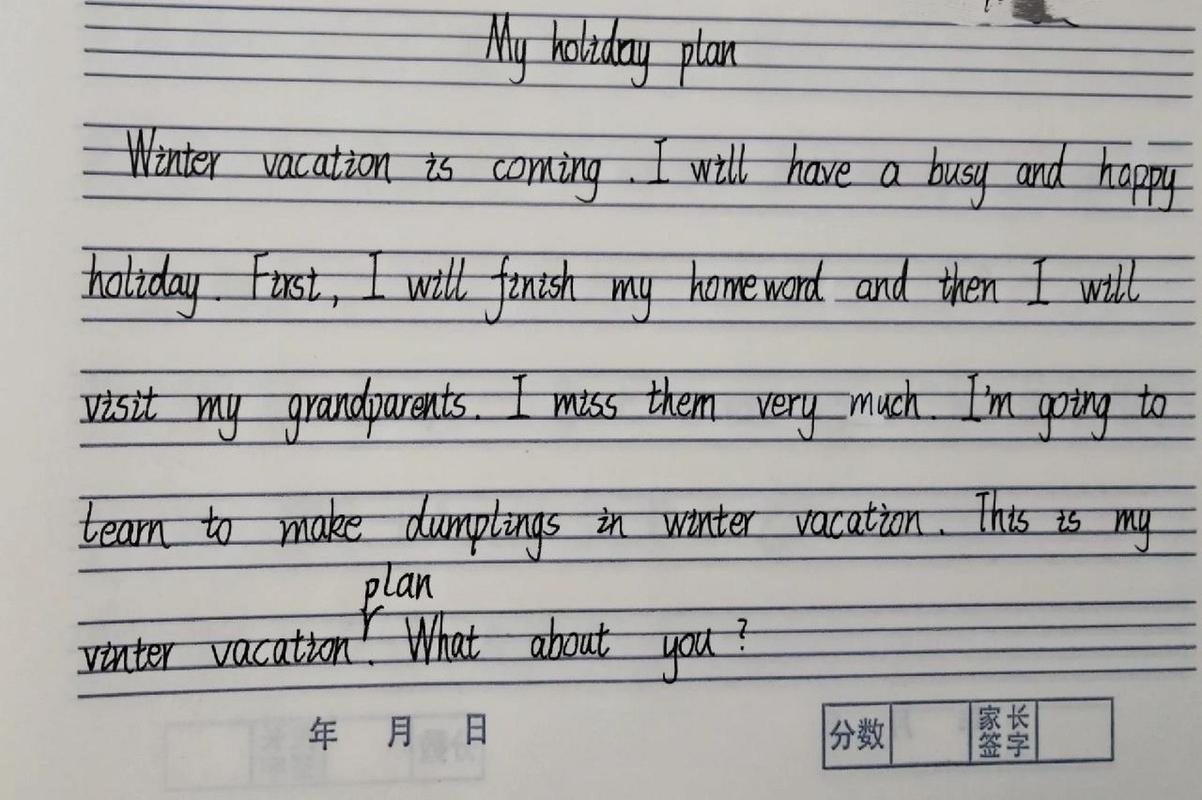 My holiday plan
Winter vacation is coming. I will have a busy and happy
holiday. First, I will finish my homeword and then I will
visit my grandparents. I miss them very much. I'm going to
learn to make dumplings in winter vacation. This is my
plan
vinter vacation. What about you?
年 月 日
分数 家长签字